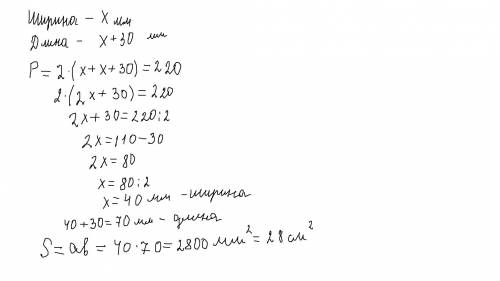 Ширина – х мм
Длина – х+30 мм
P = 2·(х+х+30) = 220
2·(2х+30) = 220
2х+30=220:2
2х=110–30
2х=80
х=80:2
х=40 мм –ширина
40+30=70 мм – длина
S = ab = 40·70=2800 мм² = 28 см²